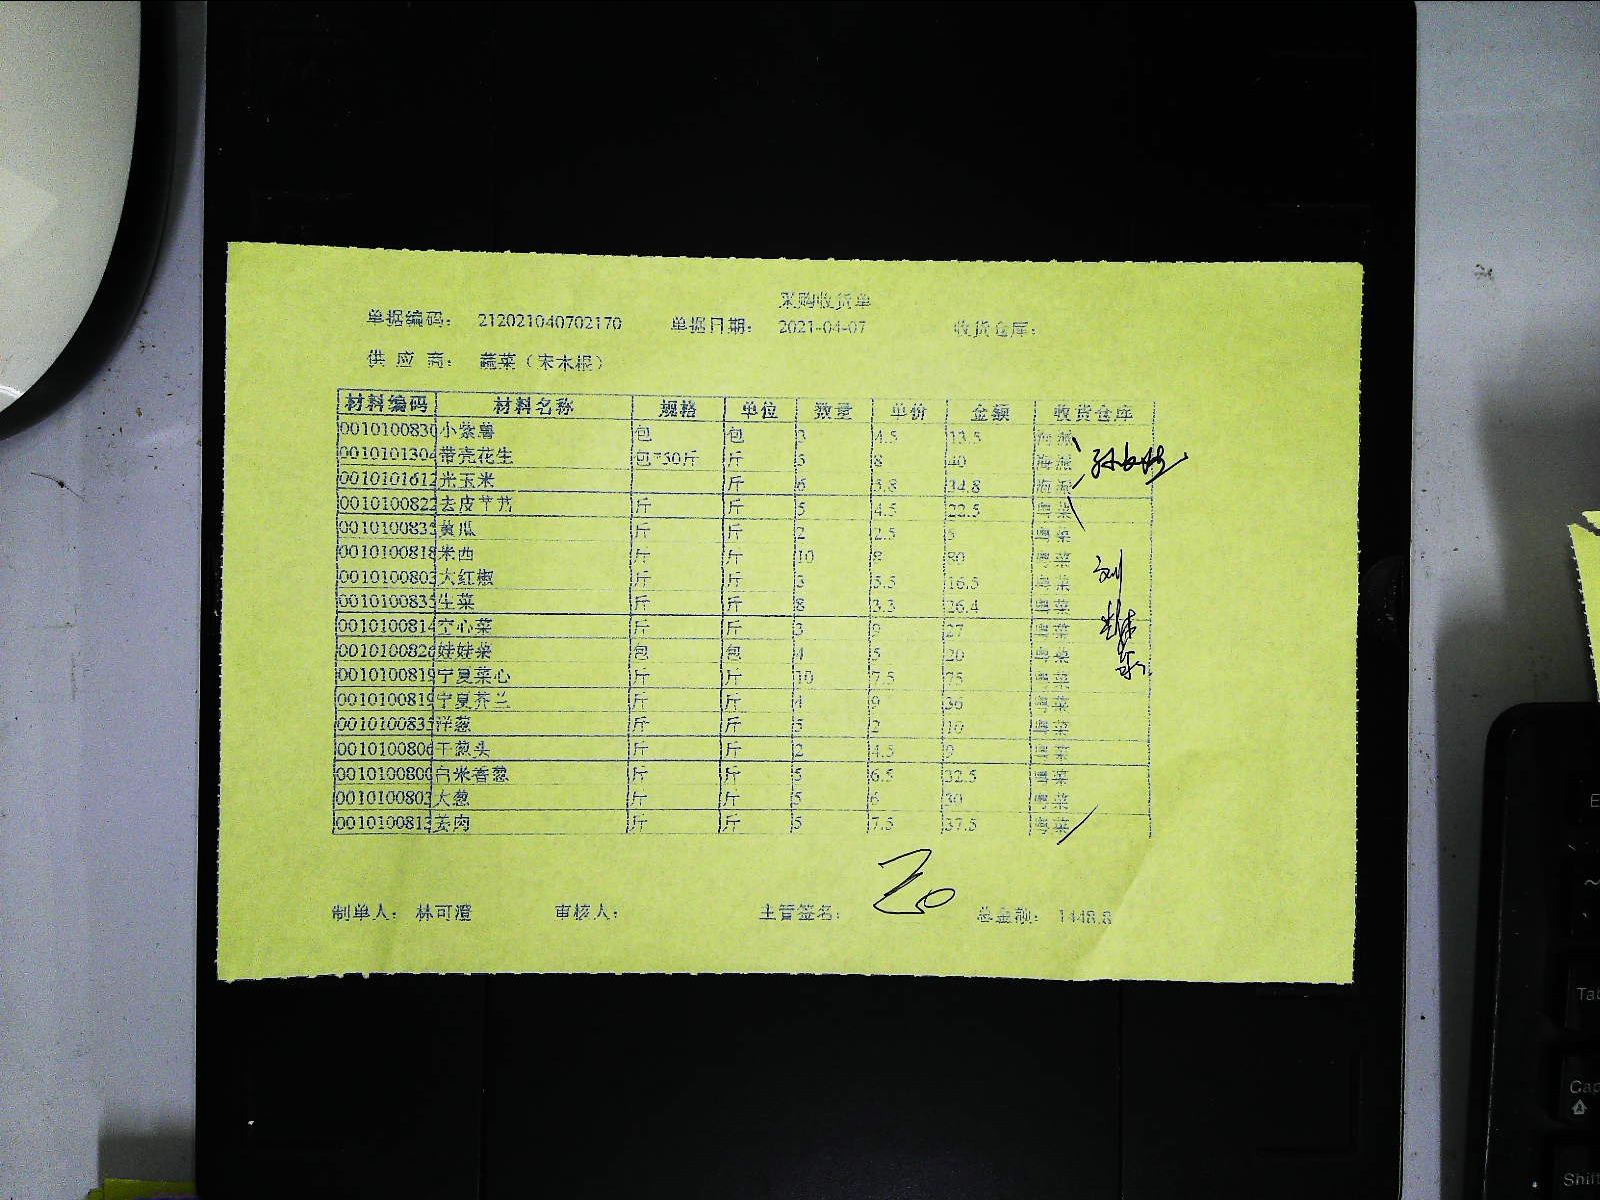 采购收货单
单据编码： 212021040702170 单据日期： 2021-04-07 收货仓库：
供 应 商： 蔬菜（宋木根）
材料编码 材料名称 规格 单位 数量 单价 金额 收货仓库
0010100830 小紫薯 包 包 3 4.5 13.5 海派
0010101304 带壳花生 包*50斤 斤 5 8 40 海派
0010101612 光玉米 斤 6 5.8 34.8 海派
0010100822 去皮芋艿 斤 斤 5 4.5 22.5 粤菜
0010100835 黄瓜 斤 斤 2 2.5 5 粤菜
0010100818 米西 斤 斤 10 8 80 粤菜
0010100803 大红椒 斤 斤 3 5.5 16.5 粤菜
0010100835 生菜 斤 斤 8 3.3 26.4 粤菜
0010100814 空心菜 斤 斤 3 9 27 粤菜
0010100826 娃娃菜 包 包 4 5 20 粤菜
0010100819 宁夏菜心 斤 斤 10 7.5 75 粤菜
0010100819 宁夏芥兰 斤 斤 4 9 36 粤菜
0010100835 洋葱 斤 斤 5 2 10 粤菜
0010100806 干葱头 斤 斤 2 4.5 9 粤菜
0010100800 白米香葱 斤 斤 5 6.5 32.5 粤菜
0010100803 大葱 斤 斤 5 6 30 粤菜
0010100813 姜肉 斤 斤 5 7.5 37.5 粤菜
制单人： 林可澄 审核人： 主管签名： 总金额： 1448.8
Tab
Cap
Shift